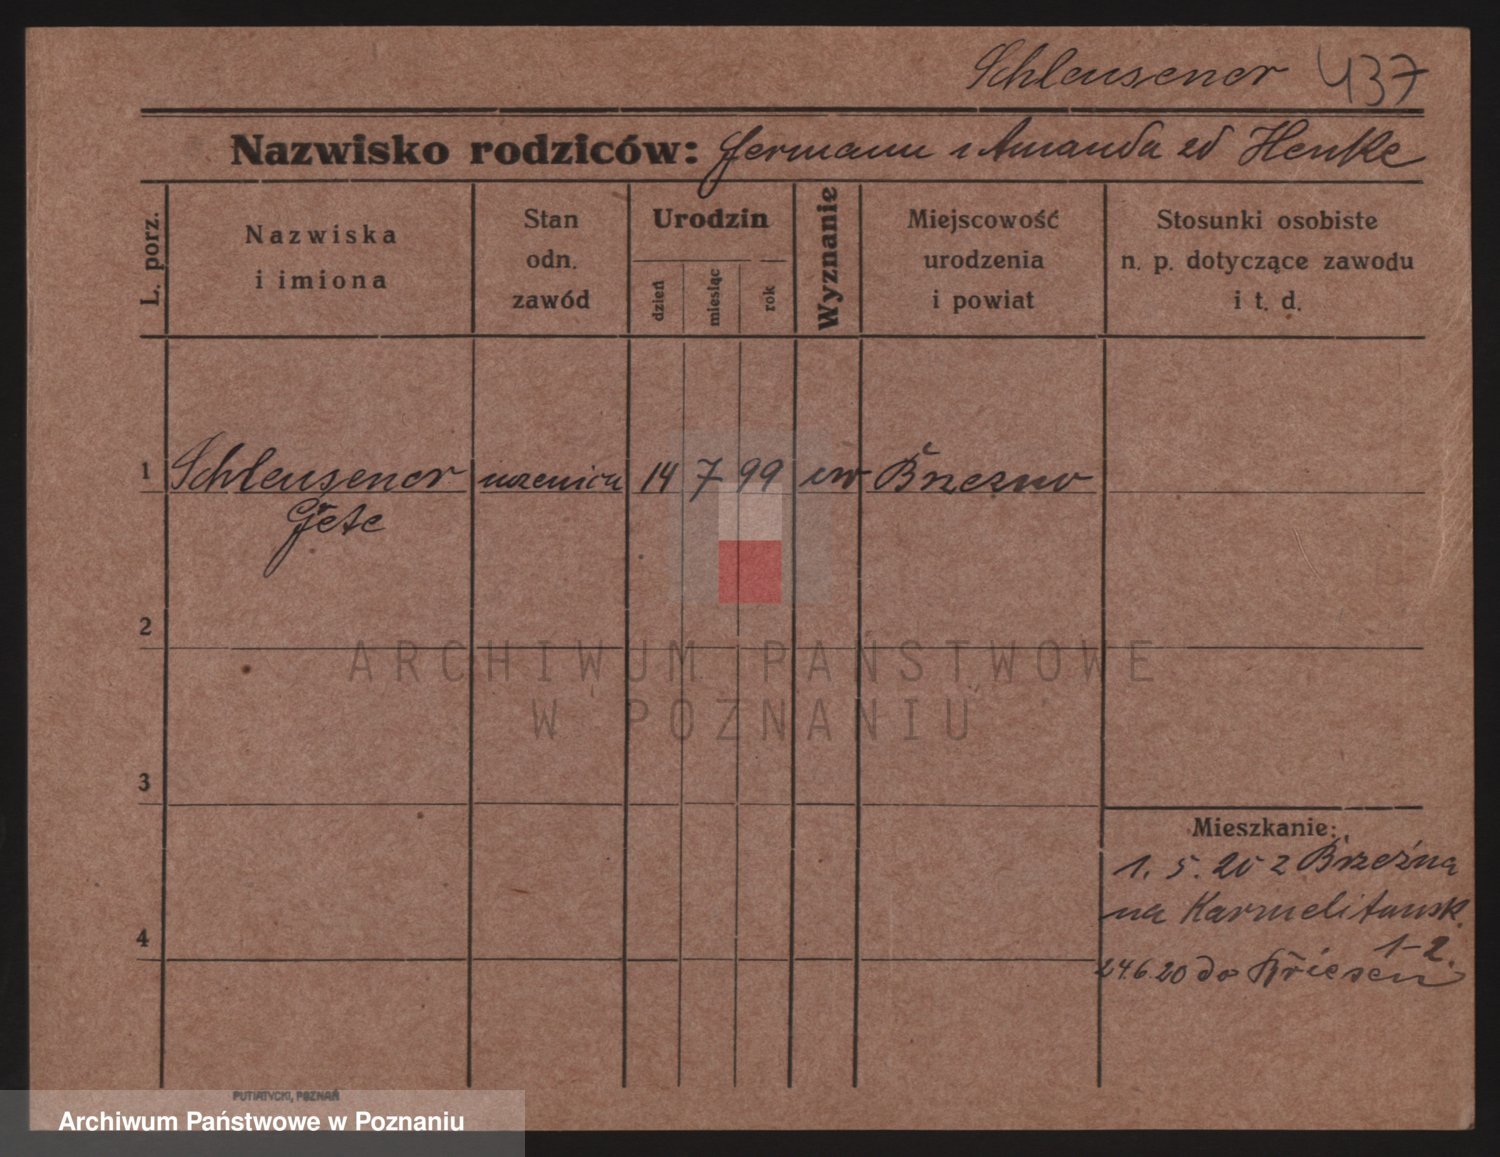 Schleusener 437
Nazwisko rodziców: Hermann i Amanda zd Henke
L. porz.
Nazwiska
i imiona
Stan
odn.
zawód
Urodzin
dzień
miesiąc
rok
Wyznanie
Miejscowość
urodzenia
i powiat
Stosunki osobiste
n. p. dotyczące zawodu
i t. d.
1 Schleusener uczenica 14 7 99 ew Brzezno
Grete
2
3
4
Mieszkanie:
1. 5. 20 z Brzeźna
na Karmelitansk.
1-2.
24.6.20 do Briesen
PUTIATYCKI, POZNAŃ
ARCHIWUM PAŃSTWOWE
W POZNANIU
Archiwum Państwowe w Poznaniu